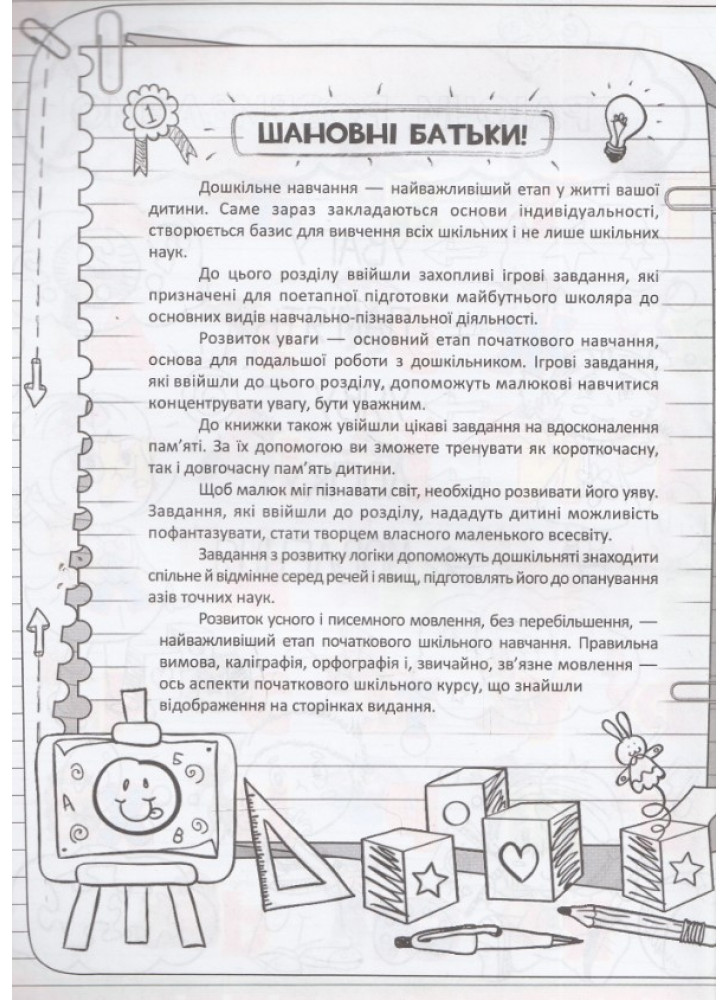 1
ШАНОВНІ БАТЬКИ!
Дошкільне навчання — найважливіший етап у житті вашої
дитини. Саме зараз закладаються основи індивідуальності,
створюється базис для вивчення всіх шкільних і не лише шкільних
наук.
До цього розділу ввійшли захопливі ігрові завдання, які
призначені для поетапної підготовки майбутнього школяра до
основних видів навчально-пізнавальної діяльності.
Розвиток уваги — основний етап початкового навчання,
основа для подальшої роботи з дошкільником. Ігрові завдання,
які ввійшли до цього розділу, допоможуть малюкові навчитися
концентрувати увагу, бути уважним.
До книжки також увійшли цікаві завдання на вдосконалення
пам’яті. За їх допомогою ви зможете тренувати як короткочасну,
так і довгочасну пам’ять дитини.
Щоб малюк міг пізнавати світ, необхідно розвивати його уяву.
Завдання, які ввійшли до розділу, нададуть дитині можливість
пофантазувати, стати творцем власного маленького всесвіту.
Завдання з розвитку логіки допоможуть дошкільняті знаходити
спільне й відмінне серед речей і явищ, підготовлять його до опанування
азів точних наук.
Розвиток усного і писемного мовлення, без перебільшення, —
найважливіший етап початкового шкільного навчання. Правильна
вимова, каліграфія, орфографія і, звичайно, зв’язне мовлення —
ось аспекти початкового шкільного курсу, що знайшли
відображення на сторінках видання.
Б
А
В